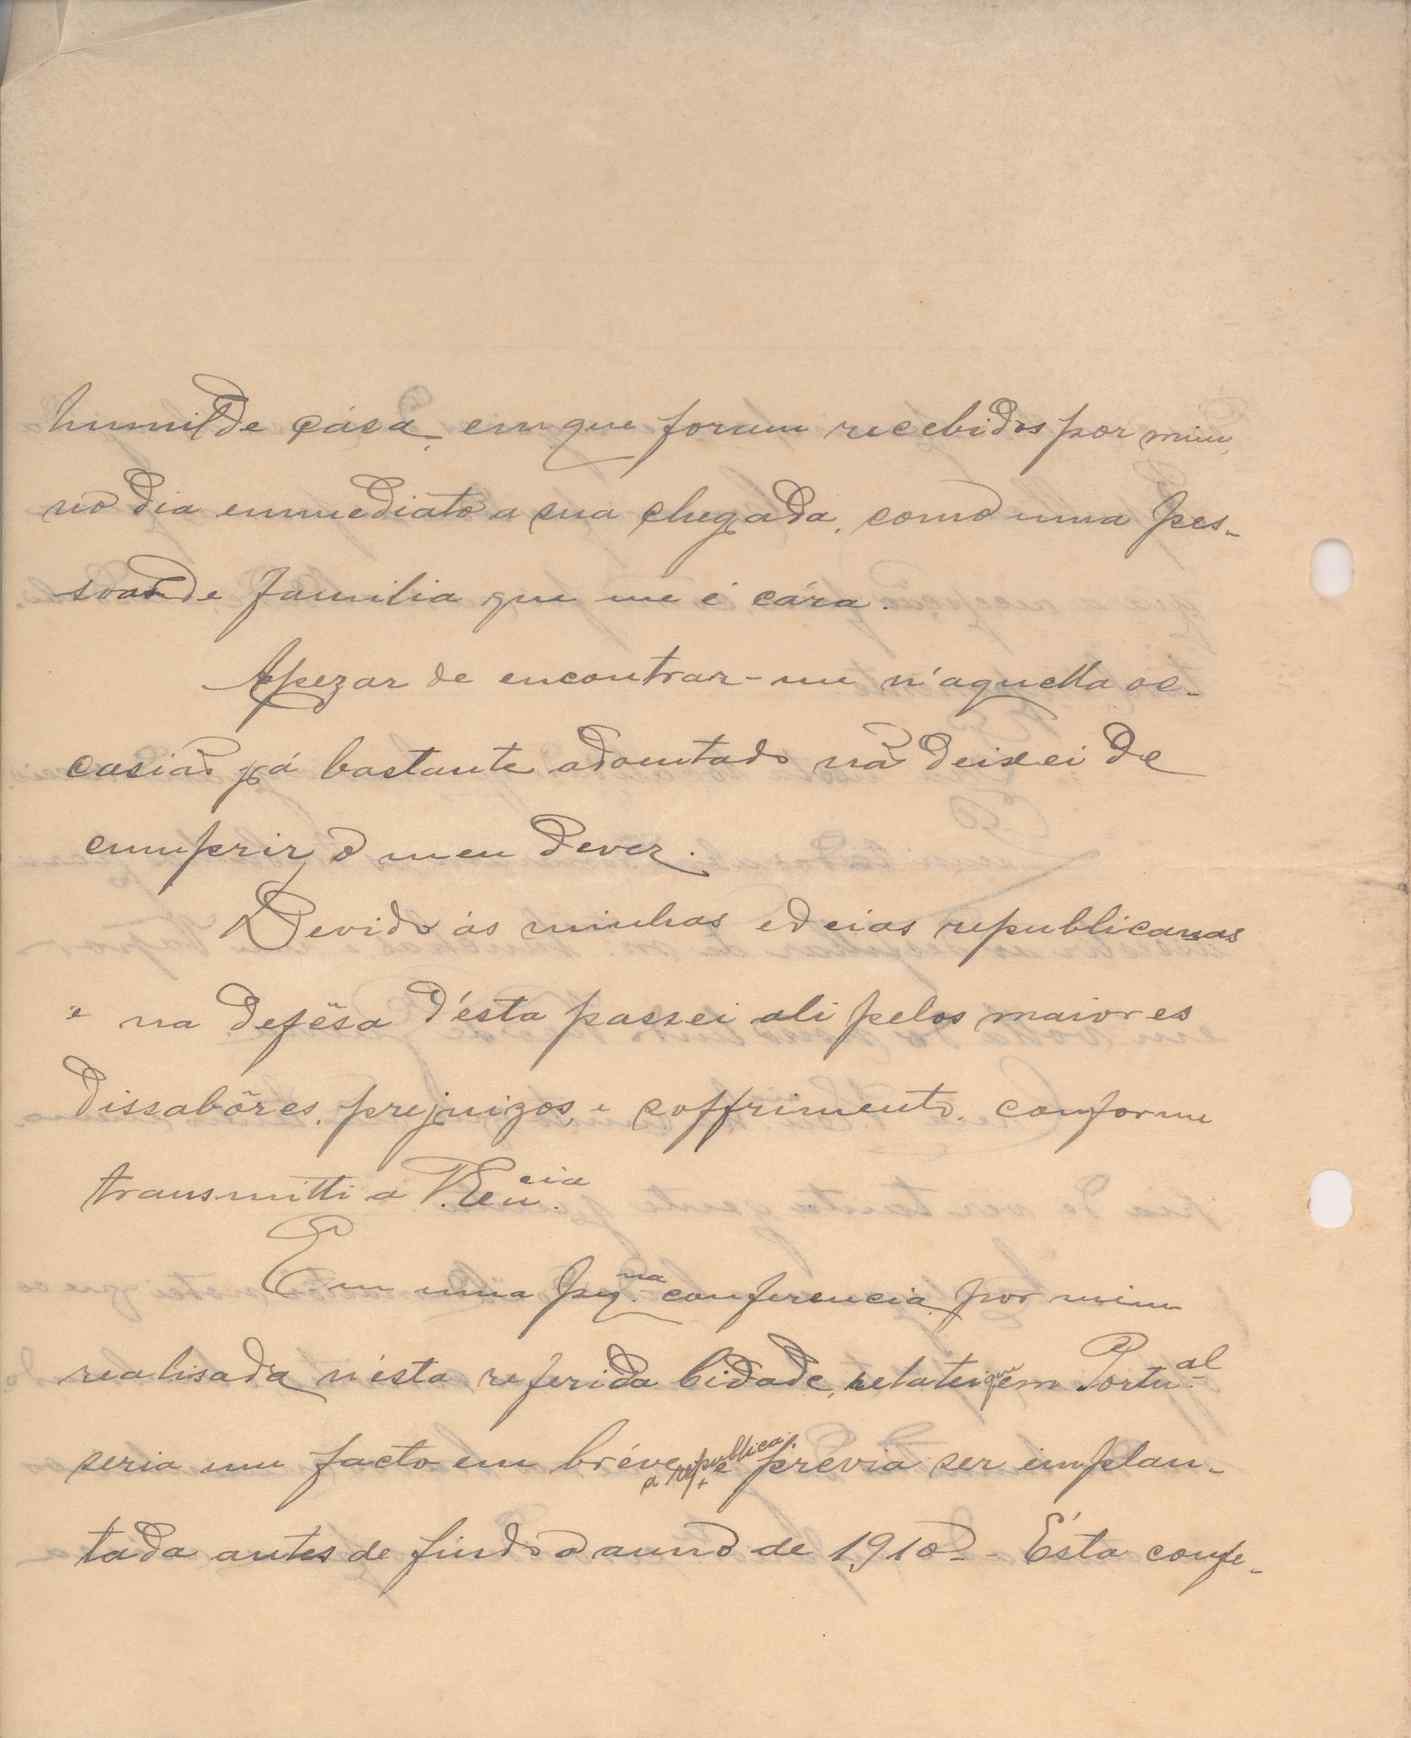 humilde cása, em que foram recebidos por mim,
no dia emmediato a sua chegada, como uma pes-
soa de familia que me é cára.
Apezar de encontrar-me n'aquella oc-
casião já bastante adoentado não deixei de
cumprir o meu dever.
Devido ás minhas edeias republicanas
e na defêsa d'ésta passei ali pelos maiores
dissabôres, prejuizos, e soffrimento, conforme
transmitti a V. Excia.
Em uma peqna. conferencia, por mim
realisada n'ésta referida Cidade, relatei que em Portual
seria um facto em bréve a republica, e prévia ser implan-
tada antes de findo o anno de 1910 - Ésta confe-